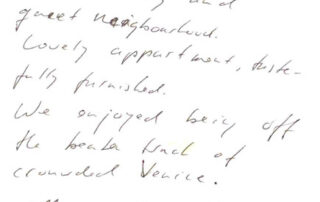 and
quiet neighbourhood.
Lovely appartment, taste-
fully furnished.
We enjoyed being off
the beaten track of
crowded Venice.